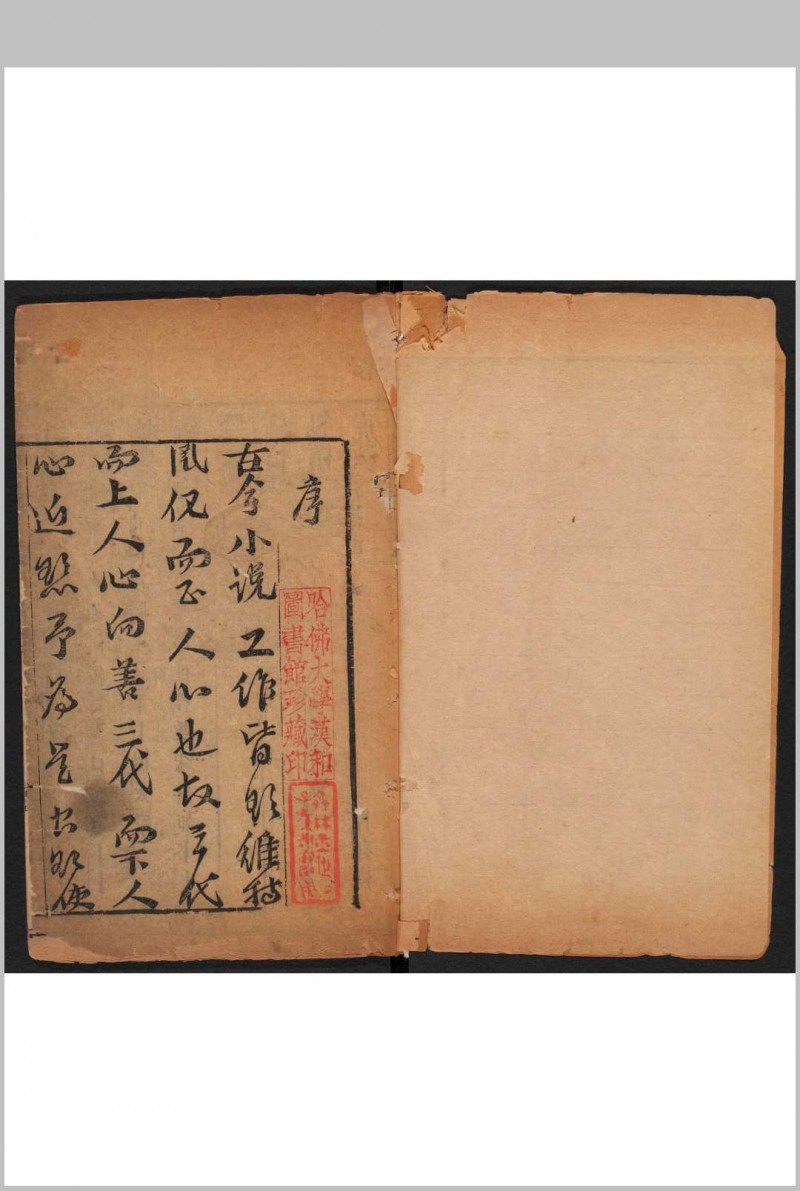 序
古今小说工作皆欲維持
風俗而正人心也故三代
而上人心向善三代而下人
心近 予為是書欲使
哈佛大學漢和
圖書館珍藏印